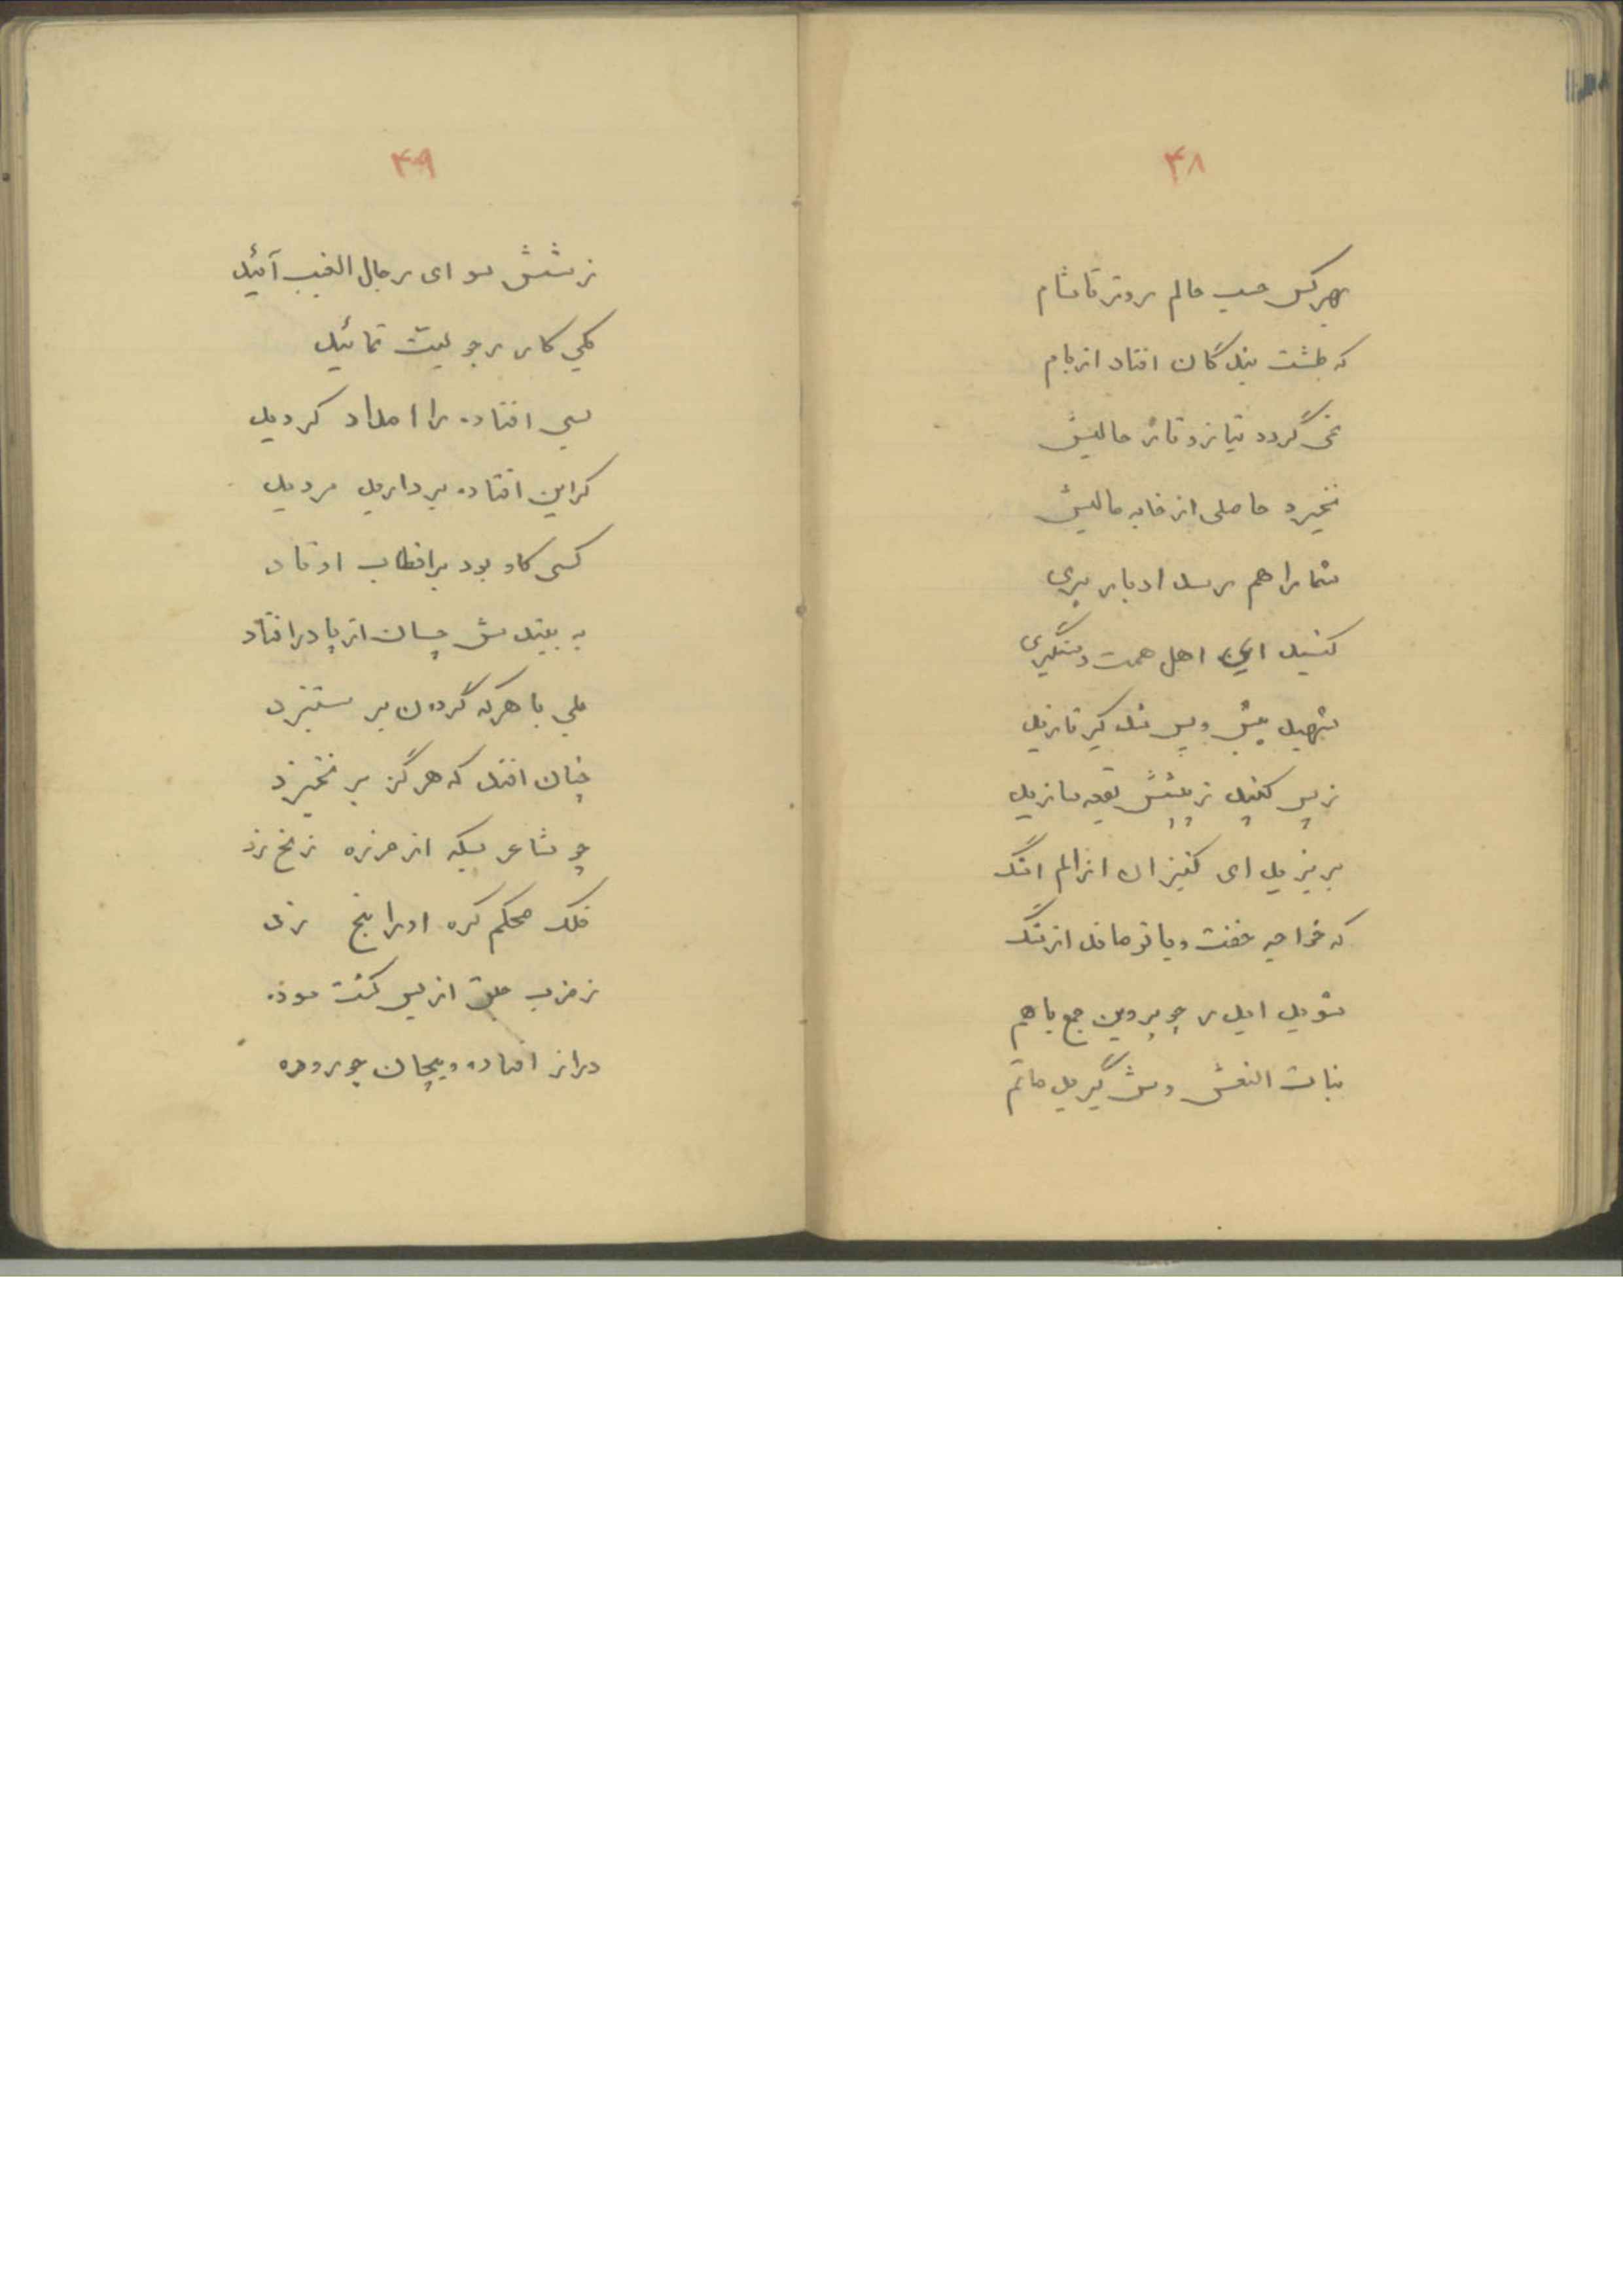 ۴۸
بهر کس حسب حالم روز تا شام
که طشت بندگان افتاد از بام
نمی گردد بتابزو تاز حالیش
نخیزد حاصلی از خایه مالیش
شما را هم رسد ادبار پیری
کنید ای اهل همت دستگیری
نهید پیش و پس شد کیر تازید
ز پس کنید ز پیشش تعبه سازید
بریزید ای کنیزان از الم اشک
که خواجه خفت و بانو ماند از رشک
شوید ایدر چو پروین جمع باهم
بنات النعش وش گیرید ماتم
۴۹
ز شش سو ای رجال الغیب آئید
یکی کار رجولیت نمائید
بسی افتاده را امداد کردید
گر این افتاده بردارید مردید
کسی کاو بود بر اقطاب اوتاد
به بیندش چسان از پا در افتاد
بلی با هر که گردون بر ستیزد
چنان افتد که هرگز بر نخیزد
چو شاعر بسکه از هرزه زنخ زد
فلک محکم گره او را بنخ زد
ز ضرب جلق از بس گشت سوده
دراز افتاده و پیچان چو روده